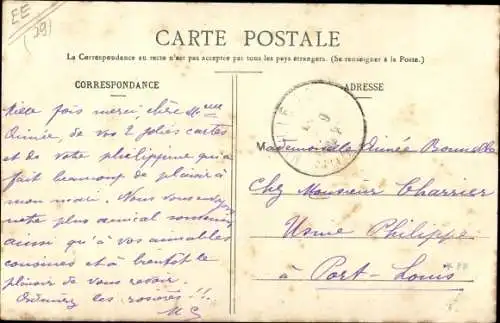 EE
(29)
CARTE POSTALE
La Correspondance au recto n'est pas acceptée par tous les pays étrangers. (Se renseigner à la Poste.)
CORRESPONDANCE
Mille fois merci, chère Melle
Aimée, de vos 2 jolies cartes
et de votre philippine qui a
fait beaucoup de plaisir à
mon mari. Nous vous envoyons
notre plus amical souvenir
ainsi qu'à vos aimables
cousines et à bientôt le
plaisir de vous revoir.
les rosières !!!
ADRESSE
Mademoiselle Aimée
Chez Monsieur Charrier
Usine Philippe
à Port-Louis